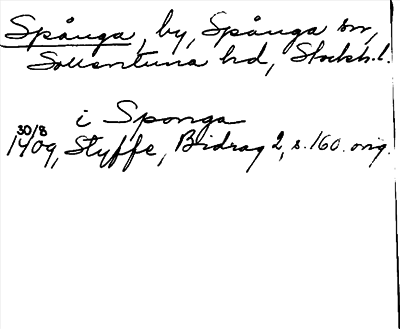 Spånga, by, Spånga sn,
Sollentuna hd, Stockh. l.
i Sponga
30/8
1409, Styffe, Bidrag 2, s. 160. orig.